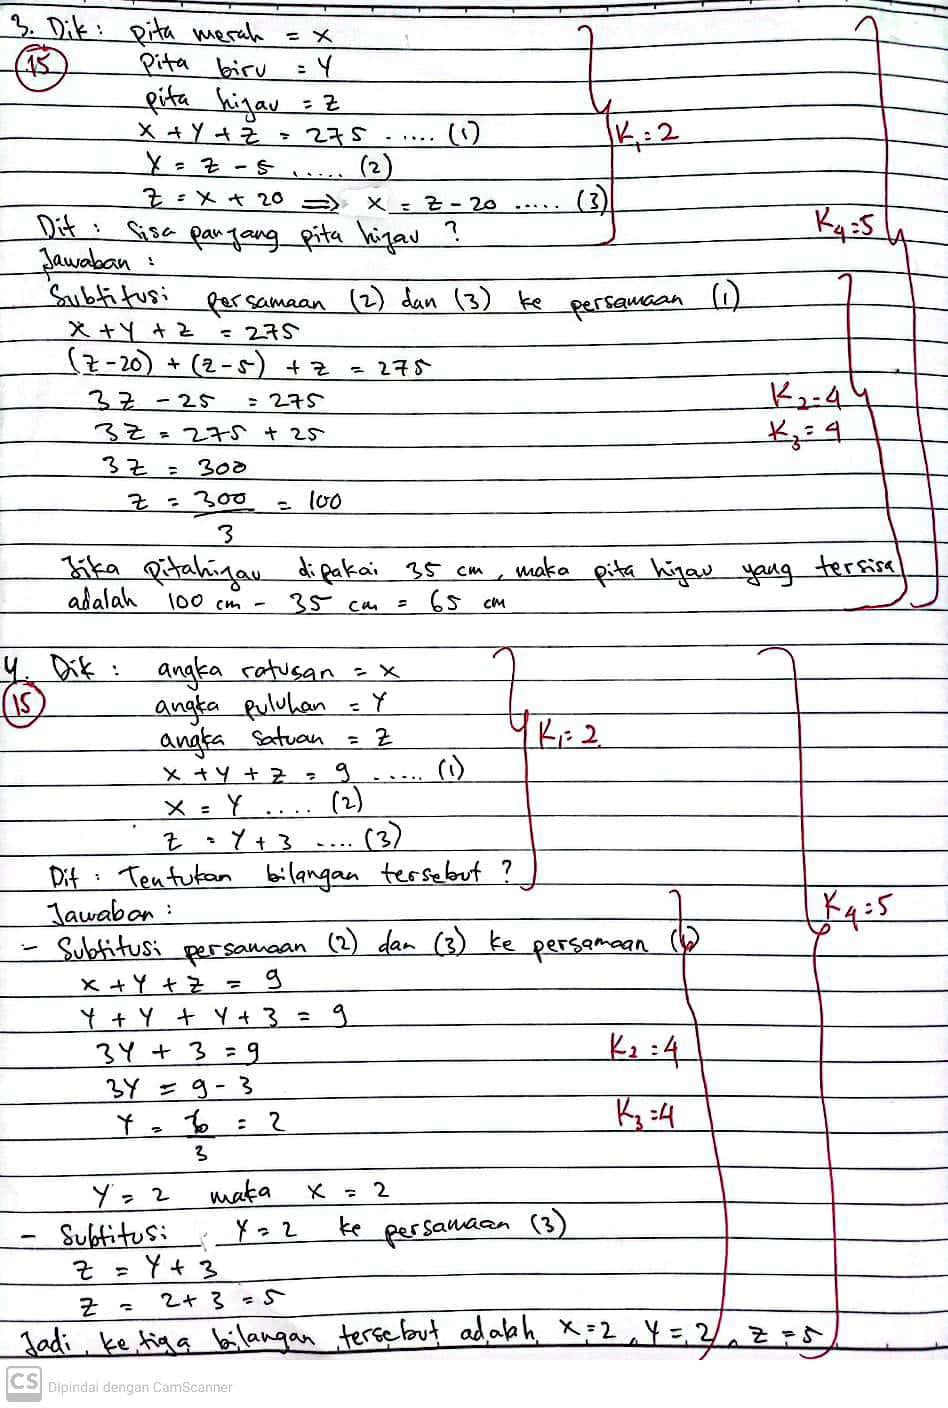 3. Dik : Pita merah = x
15 Pita biru = Y
pita hijau = z
x + Y + z = 275 ...... (1)
Y = z - 5 ...... (2) K1 = 2
z = x + 20 ⟹ x = z - 20 ..... (3)
Dit : Sisa panjang pita hijau ? K4 = 5
Jawaban :
Subtitusi persamaan (2) dan (3) ke persamaan (1)
x + Y + z = 275
(z - 20) + (z - 5) + z = 275
3z - 25 = 275 K2 = 4
3z = 275 + 25 K3 = 4
3z = 300
z = 300 = 100
3
Jika Pita hijau dipakai 35 cm, maka pita hijau yang tersisa
adalah 100 cm - 35 cm = 65 cm
4. Dik : angka ratusan = x
15 angka puluhan = Y
angka satuan = z K1 = 2
x + Y + z = 9 ...... (1)
x = Y .... (2)
z = Y + 3 .... (3)
Dit : Tentukan bilangan tersebut ?
Jawaban : K4 = 5
- Subtitusi persamaan (2) dan (3) ke persamaan (1)
x + Y + z = 9
Y + Y + Y + 3 = 9
3Y + 3 = 9 K2 = 4
3Y = 9 - 3
Y = 6 = 2 K3 = 4
3
Y = 2 maka x = 2
- Subtitusi Y = 2 ke persamaan (3)
z = Y + 3
z = 2 + 3 = 5
Jadi, ketiga bilangan tersebut adalah x = 2, Y = 2, z = 5
CS Dipindai dengan CamScanner